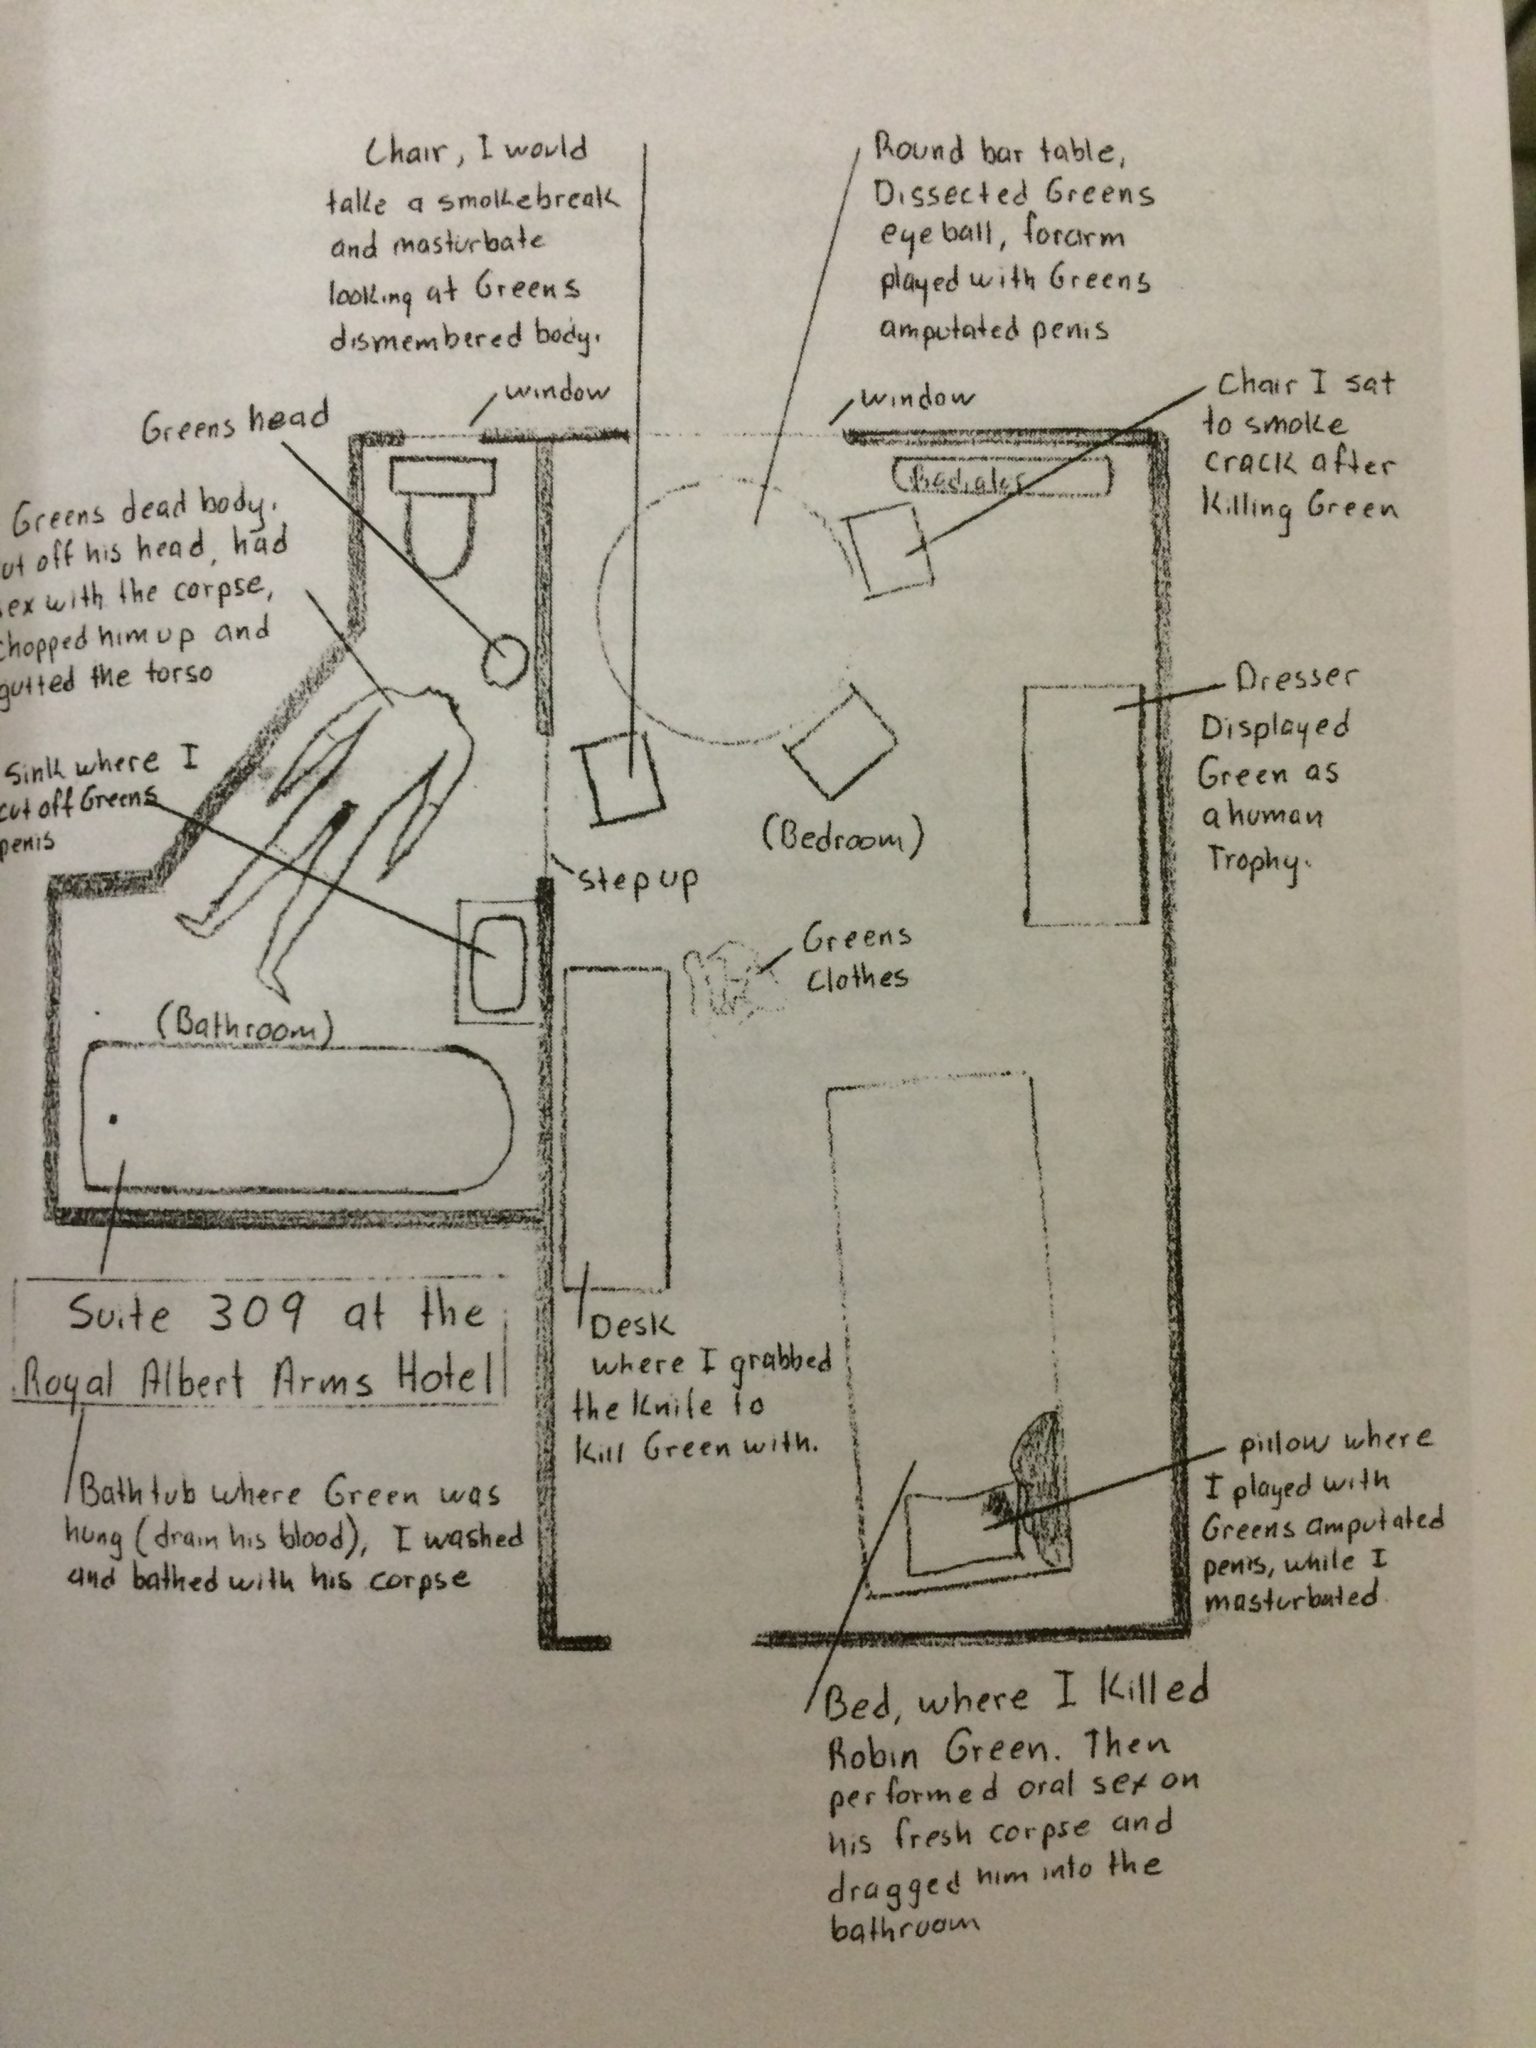 Chair, I would
take a smokebreak
and masturbate
looking at Greens
dismembered body.
Round bar table,
Dissected Greens
eyeball, forarm
played with Greens
amputated penis
window
window
Chair I sat
to smoke
crack after
Killing Green
Greens head
Radiator
Greens dead body.
ut off his head, had
ex with the corpse,
chopped him up and
gutted the torso
Dresser
Displayed
Green as
a human
Trophy.
Sink where I
cut off Greens
penis
(Bedroom)
step up
Greens
clothes
(Bathroom)
Suite 309 at the
Royal Albert Arms Hotel
Desk
where I grabbed
the Knife to
Kill Green with.
Bathtub where Green was
hung (drain his blood), I washed
and bathed with his corpse
pillow where
I played with
Greens amputated
penis, while I
masturbated
Bed, where I Killed
Robin Green. Then
performed oral sex on
his fresh corpse and
dragged him into the
bathroom